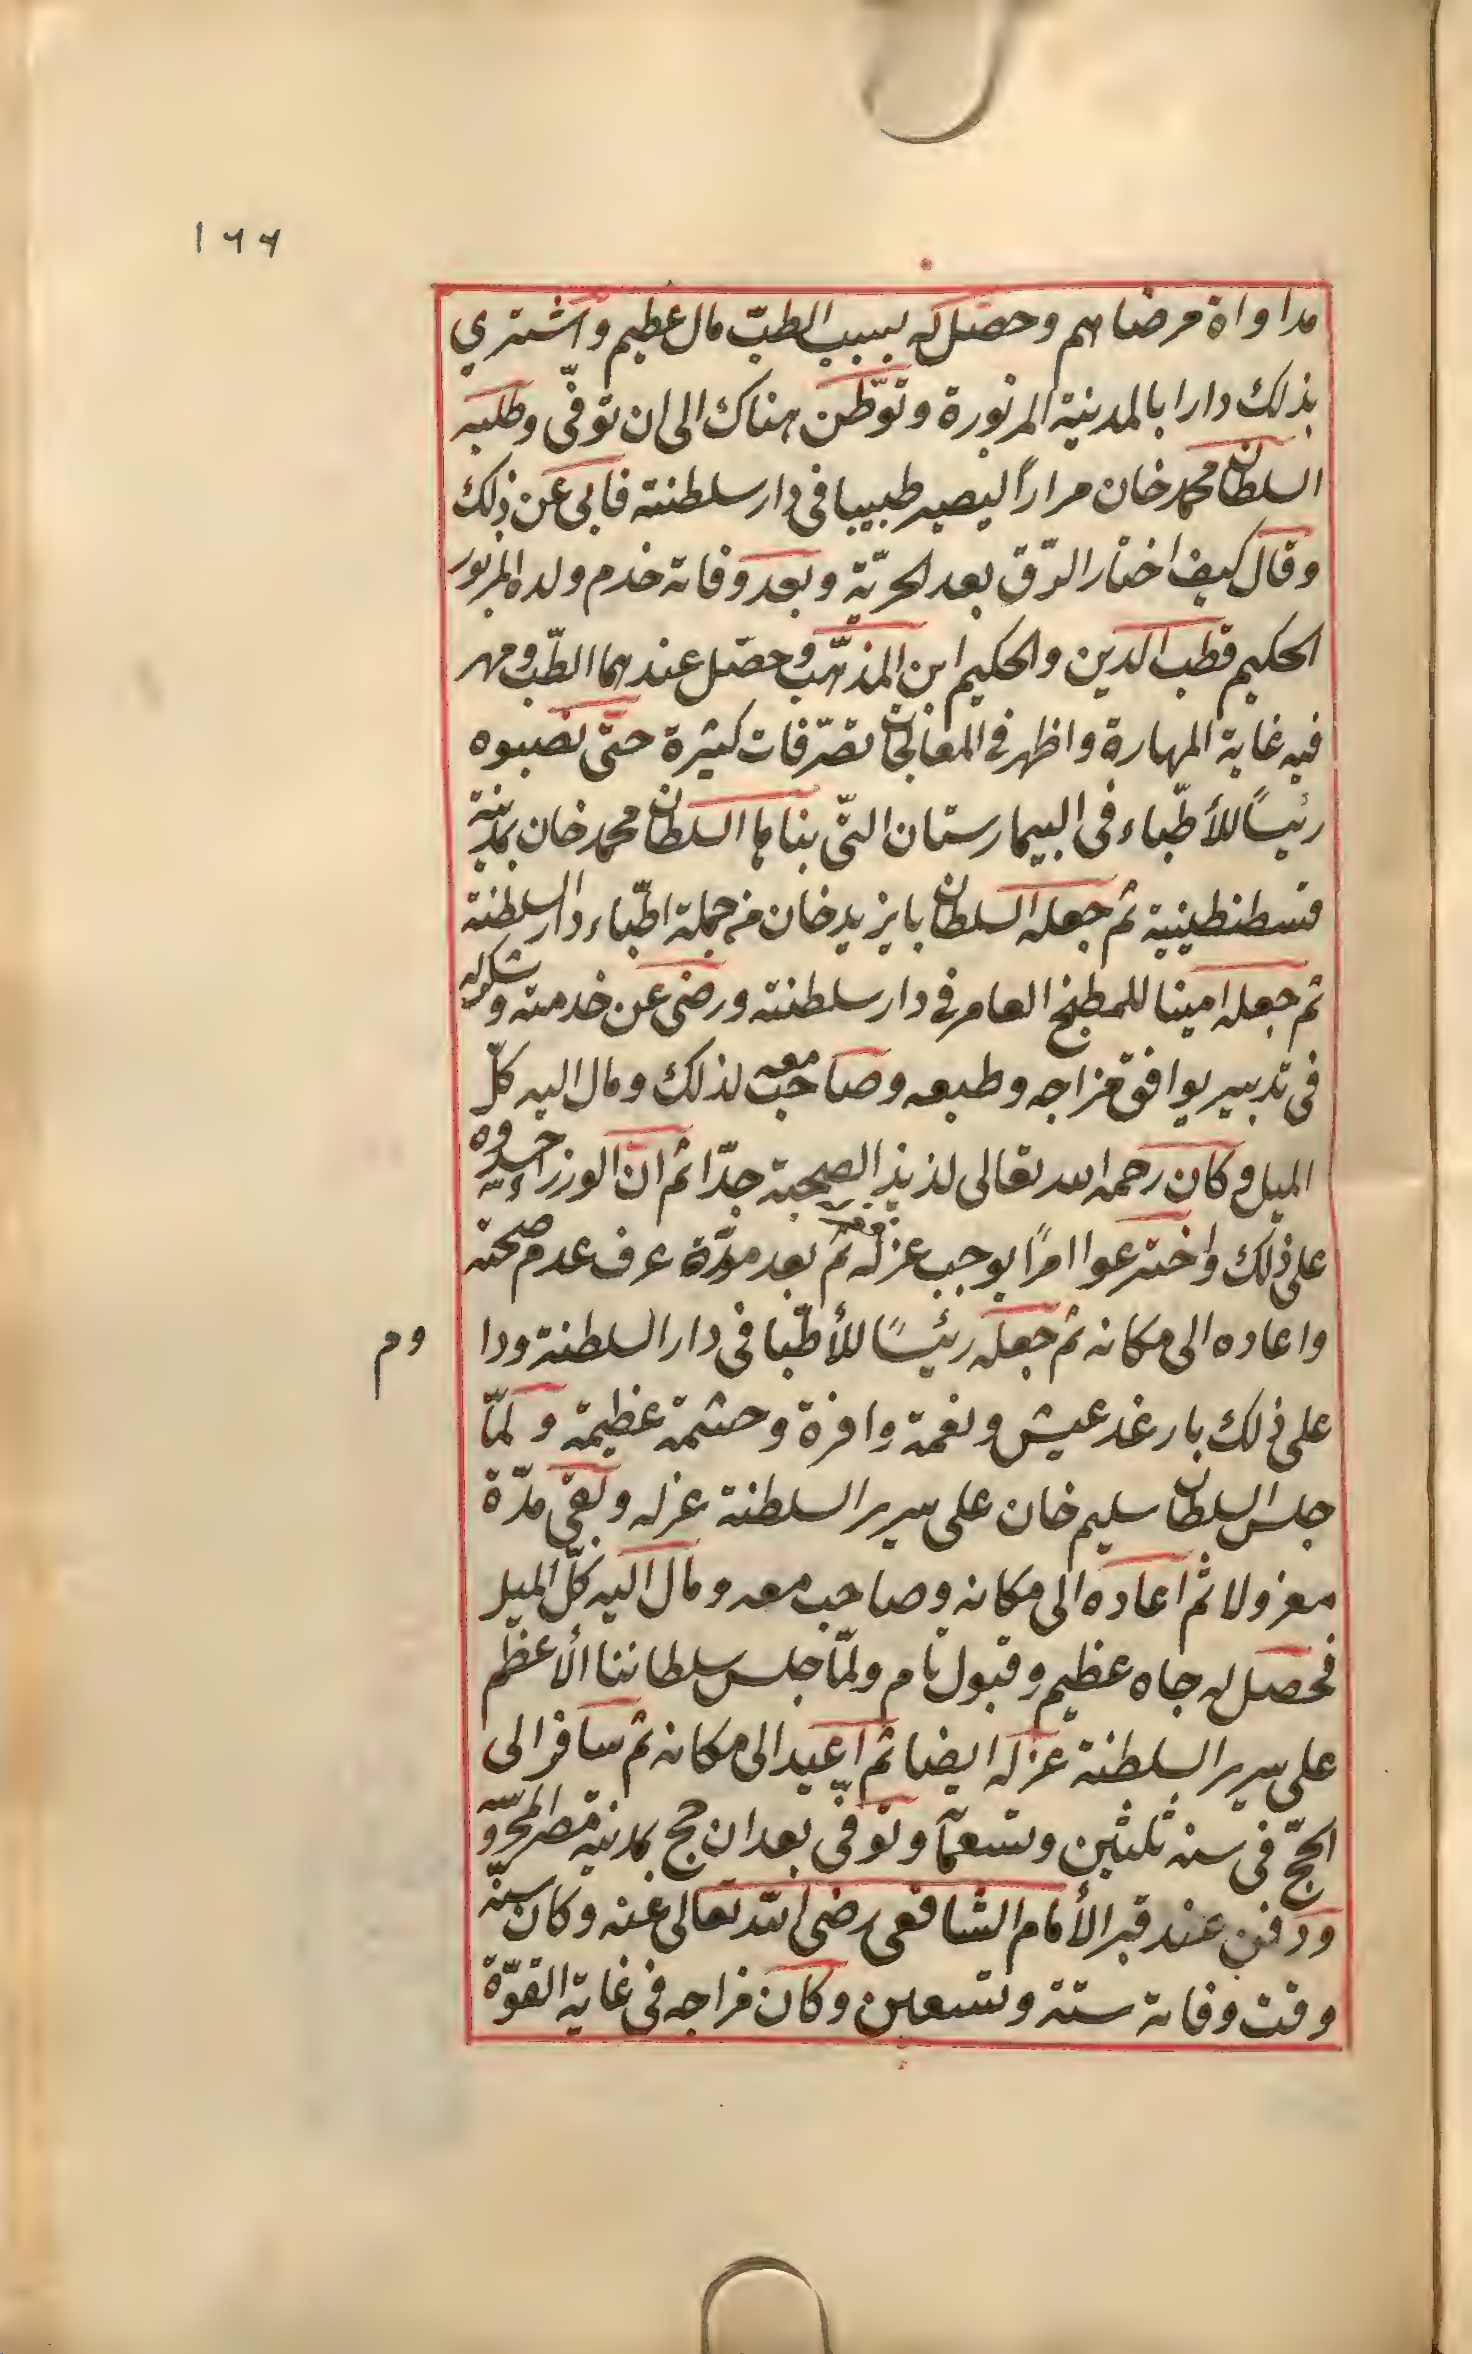 ١٦٦
مداواة مرضاهم وحصّل له بسبب الطبّ مال عظيم واشتري
بذلك دارا بالمدينة المزبورة وتوّطن هناك الى ان توفّى وطلبه
السلطان محمد خان مراراً ليصير طبيبا فى دار سلطنته فابى عن ذلك
وقال كيف اختار الرّق بعد الحريّة وبعد وفاته خدم ولده المزبور
الحكيم قطب الدين والحكيم ابن المذهّب وحصّل عندهما الطّب ومهر
فيه غاية المهارة واظهر فى المعالجات تصرّفات كثيرة حتّى نصبوه
رئيسًا للأطّباء فى البيمارستان التّى بناها السلطان محمد خان بمدينة
قسطنطينية ثم جعله السلطان بايزيد خان من جملة اطّباء دار السلطنة
ثم جعله امينا للمطبخ العامر فى دار سلطنته ورضى عن خدمته وشكر له
فى تدبير يوافق مزاجه وطبعه وصاحب معه لذلك ومال اليه كلّ
الميل وكان رحمه الله تعالى لذيذ الصحبة جدّا ثم انّ الوزراء حسدوه
على ذلك واخترعوا امرًا يوجب عزله فعزله ثم بعد مدّة عرف عدم صحته
واعاده الى مكانه ثم جعله رئيسًا للأطّبا فى دار السلطنة ودا
وم
على ذلك بارغد عيش ونعمة وافرة وحشمة عظيمة ولمّا
جلس السلطان سليم خان على سرير السلطنة عزله وبقى مدّة
معزولا ثم اعاده الى مكانه وصاحب معه ومال اليه كلّ الميل
فحصل له جاه عظيم وقبول تام ولمّا جلس سلطاننا الأعظم
على سرير السلطنة عزله ايضا ثم اعيد الى مكانه ثم سافر الى
الحجّ فى سنه ثلثين وتسعمآ وتوفّى بعد ان حج بمدينة مصر المحروسه
ودفن عند قبر الأمام الشافعى رضى الله تعالى عنه وكان سنّه
وقت وفاته ستة وتسعين وكان مزاجه فى غاية القوّة